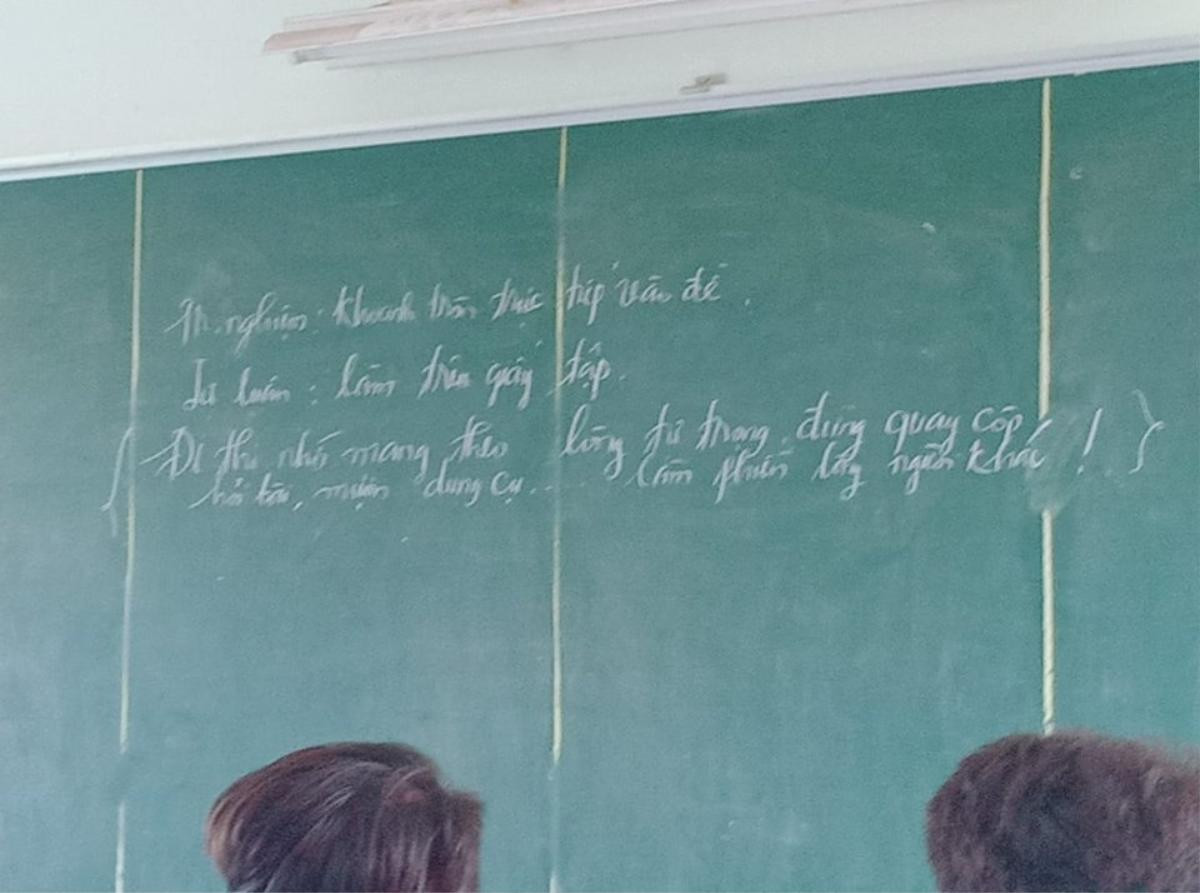 Tr. nghiệm: Khoanh tròn trực tiếp vào đề.
Tự luận: làm trên giấy tập.
Đi thi nhớ mang theo lòng tự trọng, đừng quay cóp,
hỏi bài, mượn dụng cụ.... làm phiền lòng người khác!